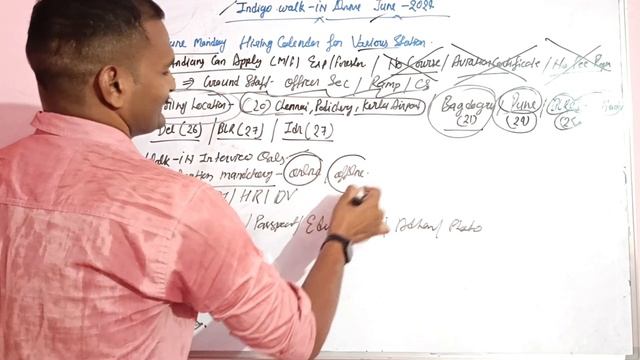 Indigo walk-in Drive June - 2024
June Monday Hiring Calender for Various Station.
Indians Can Apply (M/F) Exp/Fresher / No Course / Aviation Certificate /
⇒ Ground Staff - Officer Sec / Ramp / CS
Location - (20) Chennai, Pudichery, Kerla Airport / Bagdogra (21) / Pune (24) /
Del (26) / BLR (27) / Idr (27)
Walk-in Interview
mandatory - online, offline.
/ HR / DV
/ Passport / / Adhar / Photo